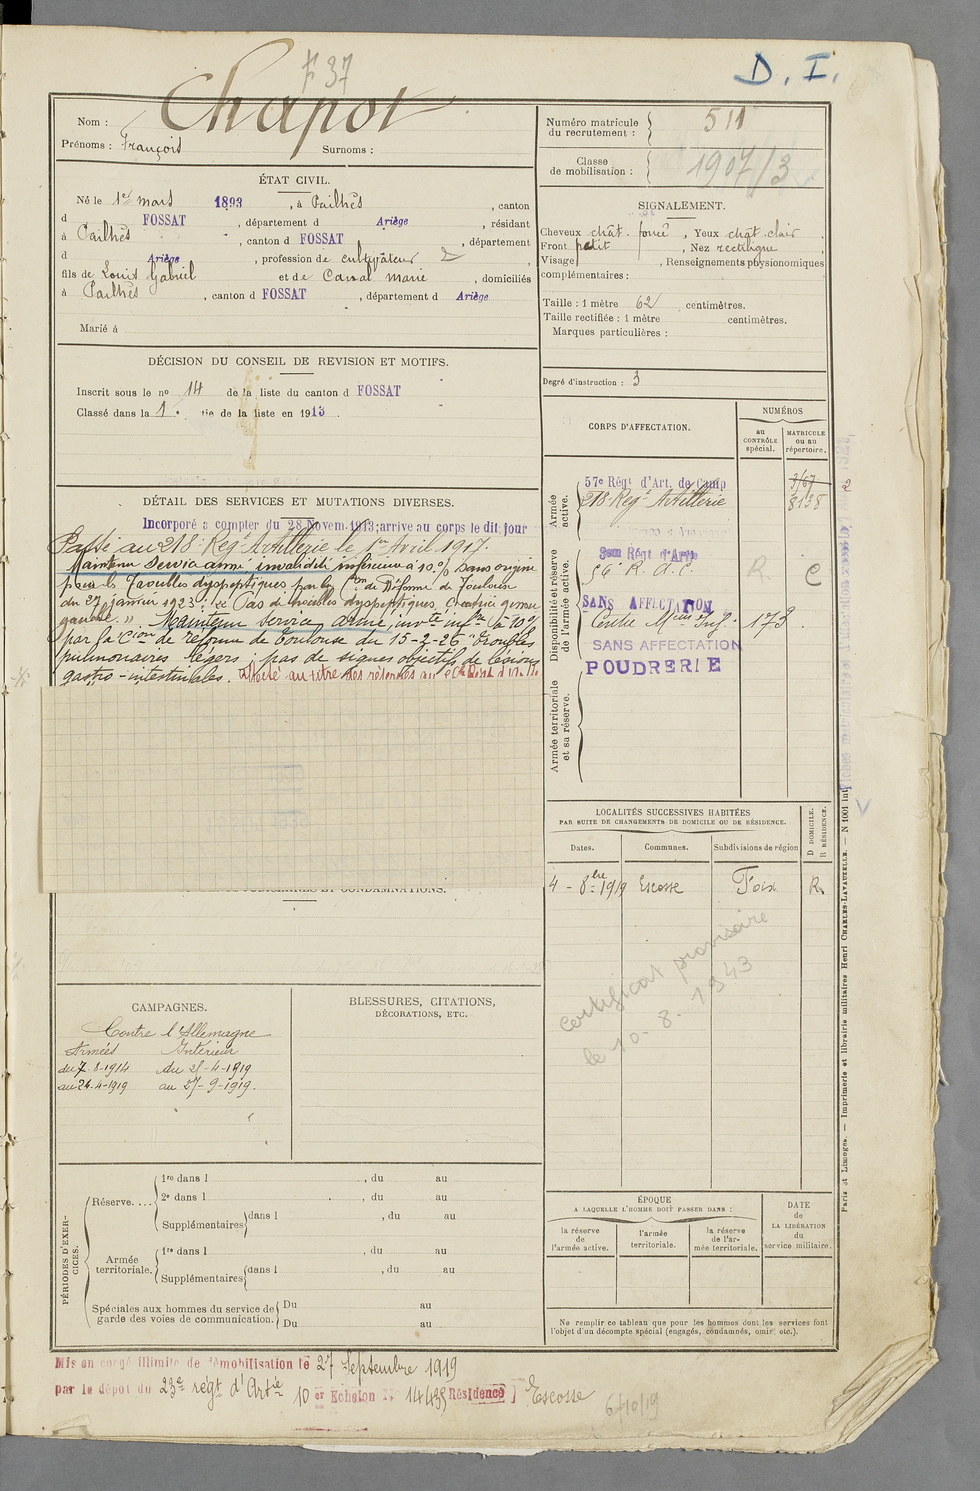 F 37
D. I.
Nom : Chapot
Prénoms : François Surnoms :
Numéro matricule du recrutement : 511
Classe de mobilisation : 1907/3
ÉTAT CIVIL.
Né le 1er mars 1893, à Pailhès, canton
d FOSSAT, département d Ariège, résidant
à Pailhès, canton d FOSSAT, département
d Ariège, profession de cultivateur
fils de Louis Gabriel et de Canal Marie, domiciliés
à Pailhès, canton d FOSSAT, département d Ariège
Marié à
SIGNALEMENT.
Cheveux chât. foncé, Yeux chât. clair,
Front petit, Nez rectiligne
Visage, Renseignements physionomiques
complémentaires :
Taille : 1 mètre 62 centimètres.
Taille rectifiée : 1 mètre centimètres.
Marques particulières :
Degré d'instruction : 3
DÉCISION DU CONSEIL DE REVISION ET MOTIFS.
Inscrit sous le no 14 de la liste du canton d FOSSAT
Classé dans la 1e tie de la liste en 1913.
DÉTAIL DES SERVICES ET MUTATIONS DIVERSES.
Incorporé à compter du 28 Novem. 1913; arrivé au corps le dit jour
Passé au 218e Regt Artillerie le 1er Avril 1917.
Maintenu service armé invalidité inférieure à 10% sans origine
pour troubles dyspeptiques par la Con de Réforme de Toulouse
du 27 janvier 1923 : "Pas de troubles dyspeptiques,
gauche." Maintenu service armé, invté infre à 10%
par la Cion de réforme de Toulouse du 15-2-26 "troubles
pulmonaires légers ; pas de signes objectifs de lésions
gastro-intestinales. Affecté au titre des réserves au
CORPS D'AFFECTATION.
NUMÉROS
au CONTRÔLE spécial.
MATRICULE ou au répertoire.
Armée active.
57e Régt d'Art. de Camp 3/67
218 Regt Artillerie 8138
2
Disponibilité et réserve de l'armée active.
Régt d'Artie
56e R. A. C. R. C
SANS AFFECTATION
173
SANS AFFECTATION
POUDRERIE
Armée territoriale et sa réserve.
LOCALITÉS SUCCESSIVES HABITÉES
PAR SUITE DE CHANGEMENTS DE DOMICILE OU DE RÉSIDENCE.
Dates. Communes. Subdivisions de région
D DOMICILE.
R RÉSIDENCE.
4 - 8bre 1919 Escosse Foix R.
Certificat provisoire
le 10-8. 1943
ET CONDAMNATIONS.
CAMPAGNES.
Contre l'Allemagne
Armées Intérieur
du 7-8-1914 du 25-4-1919
au 24-4-1919 au 27-9-1919.
BLESSURES, CITATIONS,
DÉCORATIONS, ETC.
PÉRIODES D'EXERCICES.
Réserve....
1re dans l , du au
2e dans l , du au
Supplémentaires dans l , du au
Armée territoriale.
1re dans l , du au
Supplémentaires dans l , du au
Spéciales aux hommes du service de garde des voies de communication.
Du au
Du au
ÉPOQUE
A LAQUELLE L'HOMME DOIT PASSER DANS :
la réserve de l'armée active.
l'armée territoriale.
la réserve de l'armée territoriale.
DATE de LA LIBÉRATION du service militaire.
Ne remplir ce tableau que pour les hommes dont les services font
l'objet d'un décompte spécial (engagés, condamnés, omis, etc.).
Paris et Limoges. — Imprimerie et librairie militaires Henri CHARLES-LAVAUZELLE. — N 1001 int
Mis en congé illimité de démobilisation le 27 Septembre 1919
par le dépôt du 23e régt d'Artie 10er Echelon N° 14435 Résidence Escosse
6/10/19